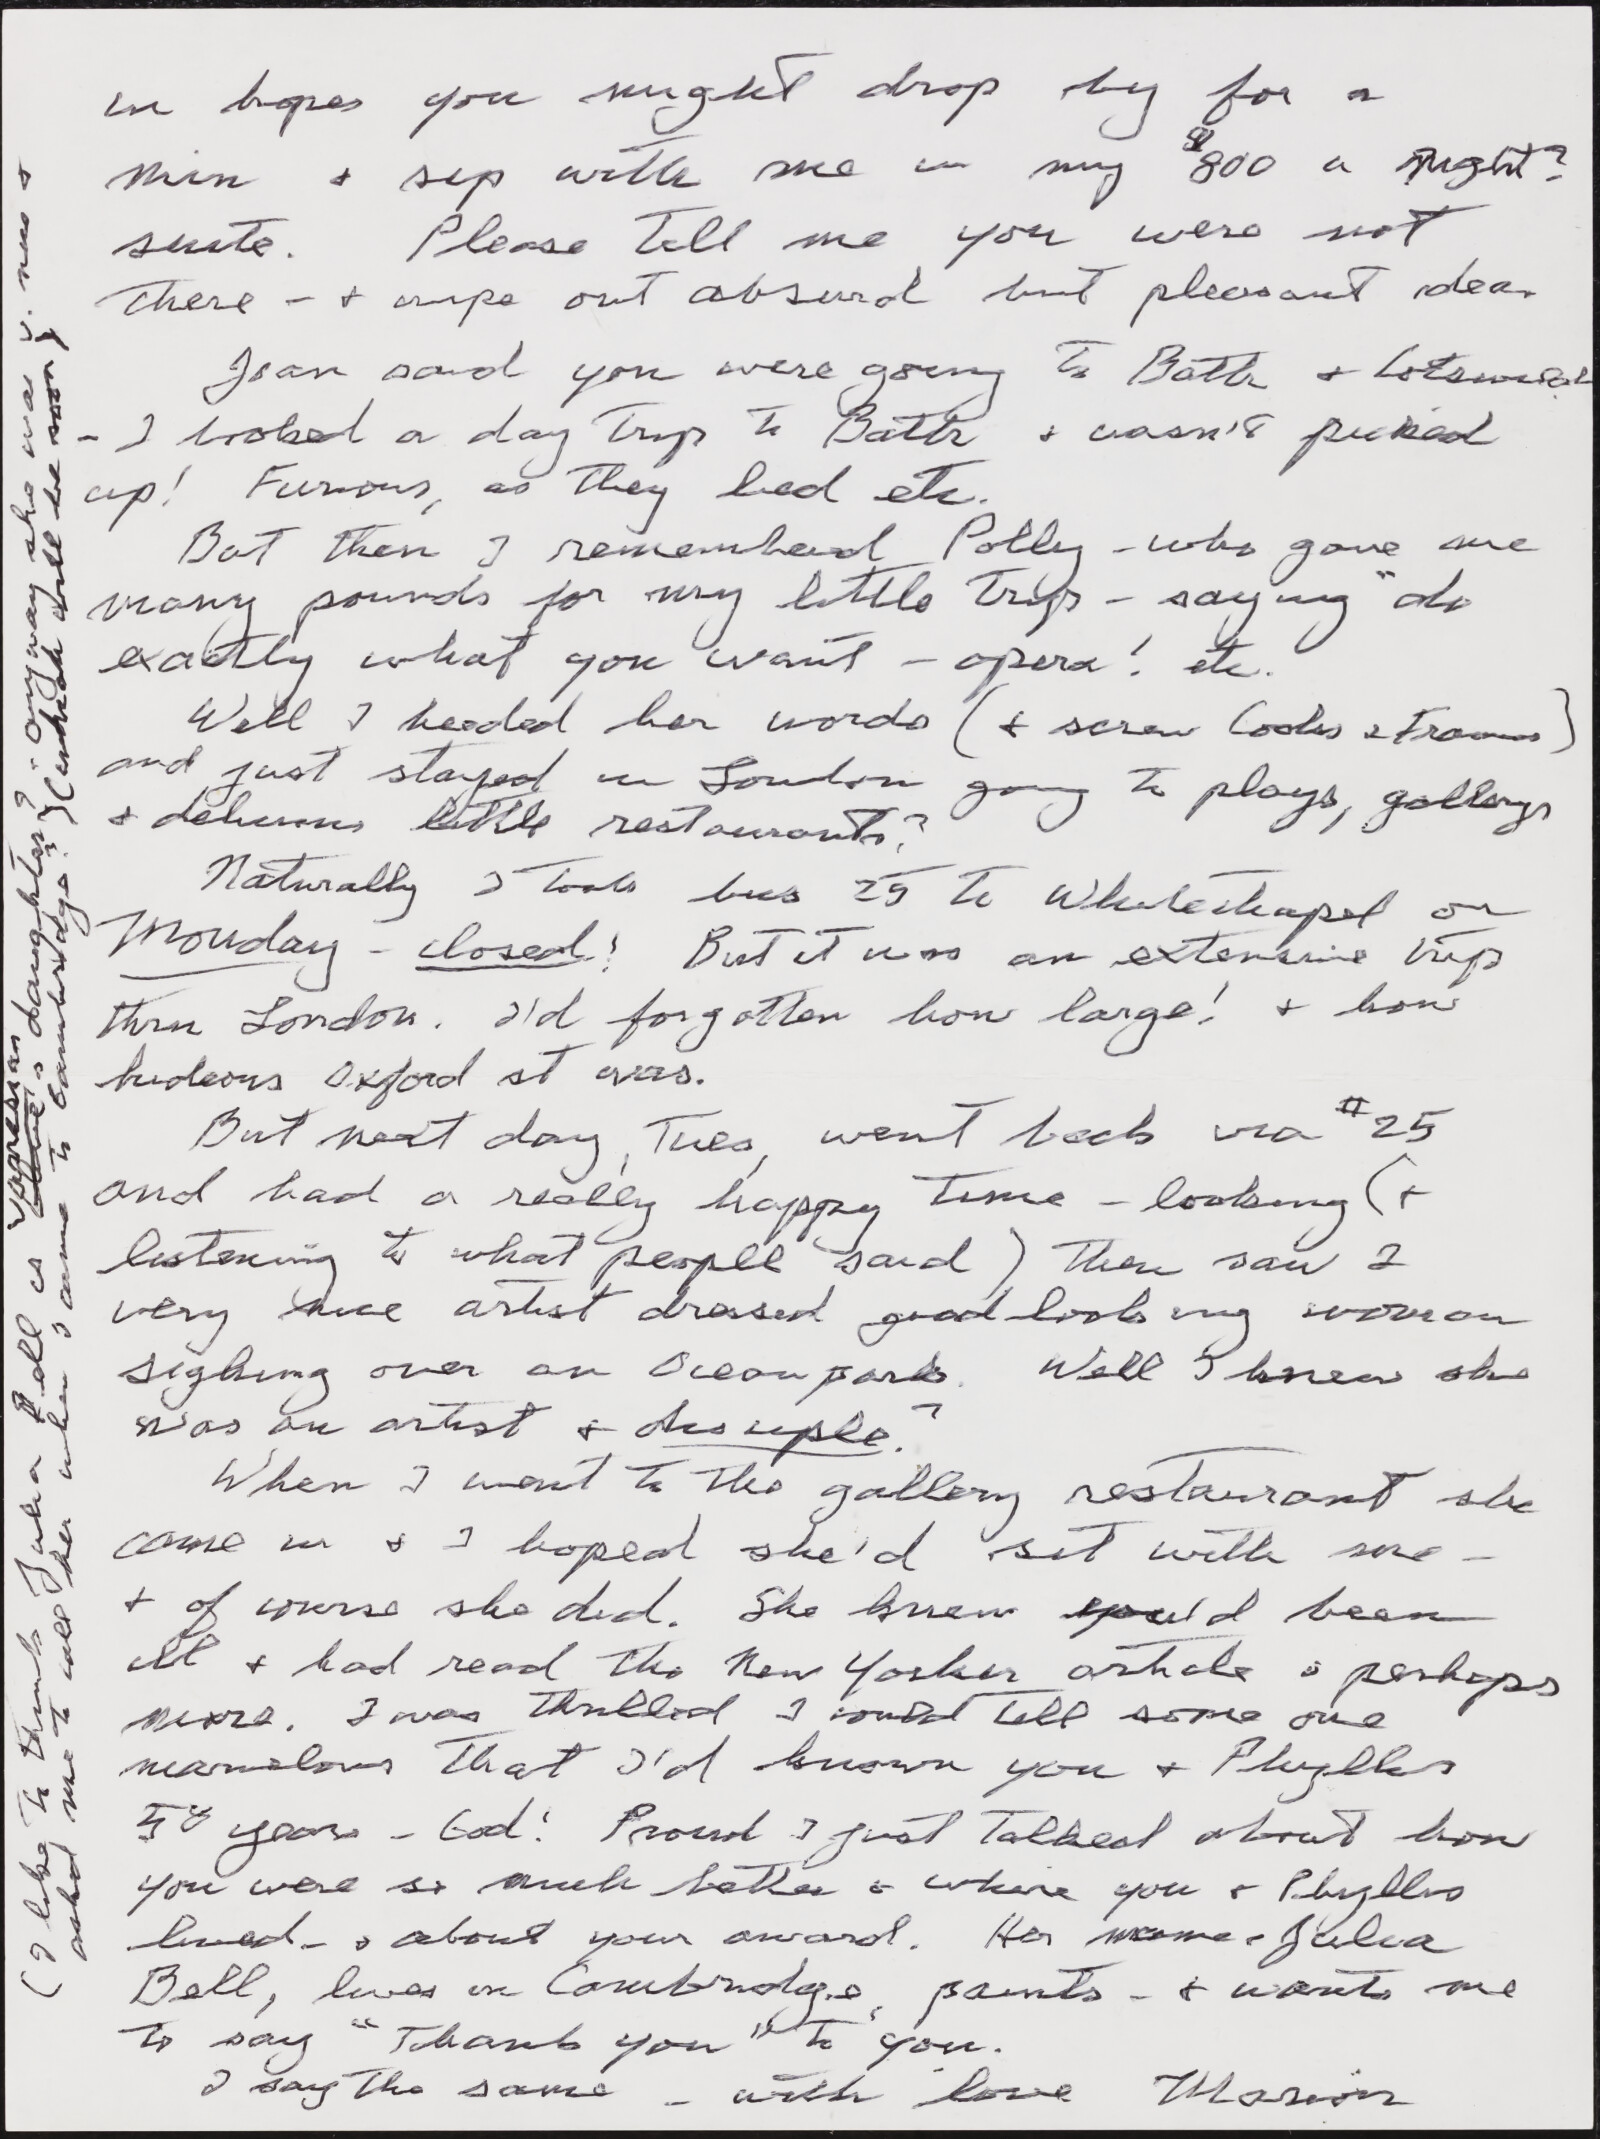 in hopes you might drop by for a
min + sip with me in my $800 a night?
suite. Please tell me you were not
there - + wipe out absurd but pleasant idea.
Joan said you were going to Bath +
- I booked a day trip to Bath + wasn't picked
up! Furious, as they lied etc.
But then I remembered Polly - who gave me
many pounds for my little trip - saying "do
exactly what you want - opera! etc.
Well I heeded her words (+ screw Cooks + Frames)
and just stayed in London going to plays, gallerys
+ delicious little restaurants?
Naturally I took bus 25 to Whitechapel on
Monday - closed! But it was an extensive trip
thru London. I'd forgotten how large! + how
hideous Oxford st was.
But next day, Tues, went back via #25
and had a really happy time - looking (+
listening to what people said) then saw 1
very nice artist dressed good looking woman
sighing over an Ocean park. Well I knew she
was an artist + disciple.?
When I went to the gallery restaurant she
came in + I hoped she'd sit with me -
+ of course she did. She knew you'd been
ill + had read the New Yorker article + perhaps
more. I was thrilled I could tell some one
marvelous that I'd known you + Phyllis
58 years - God! Proud I just talked about how
you were so much better + where you + Phyllis
lived - + about your award. Her name - Julia
Bell, lives in Cambridge, paints - + wants me
to say "Thank you" to you.
I say the same - with love Marion
(I like to think Julia Bell is Vanessa's daughter? - anyway she was v. nice +
asked me to call her when I came to Cambridge?) (which will be soon)